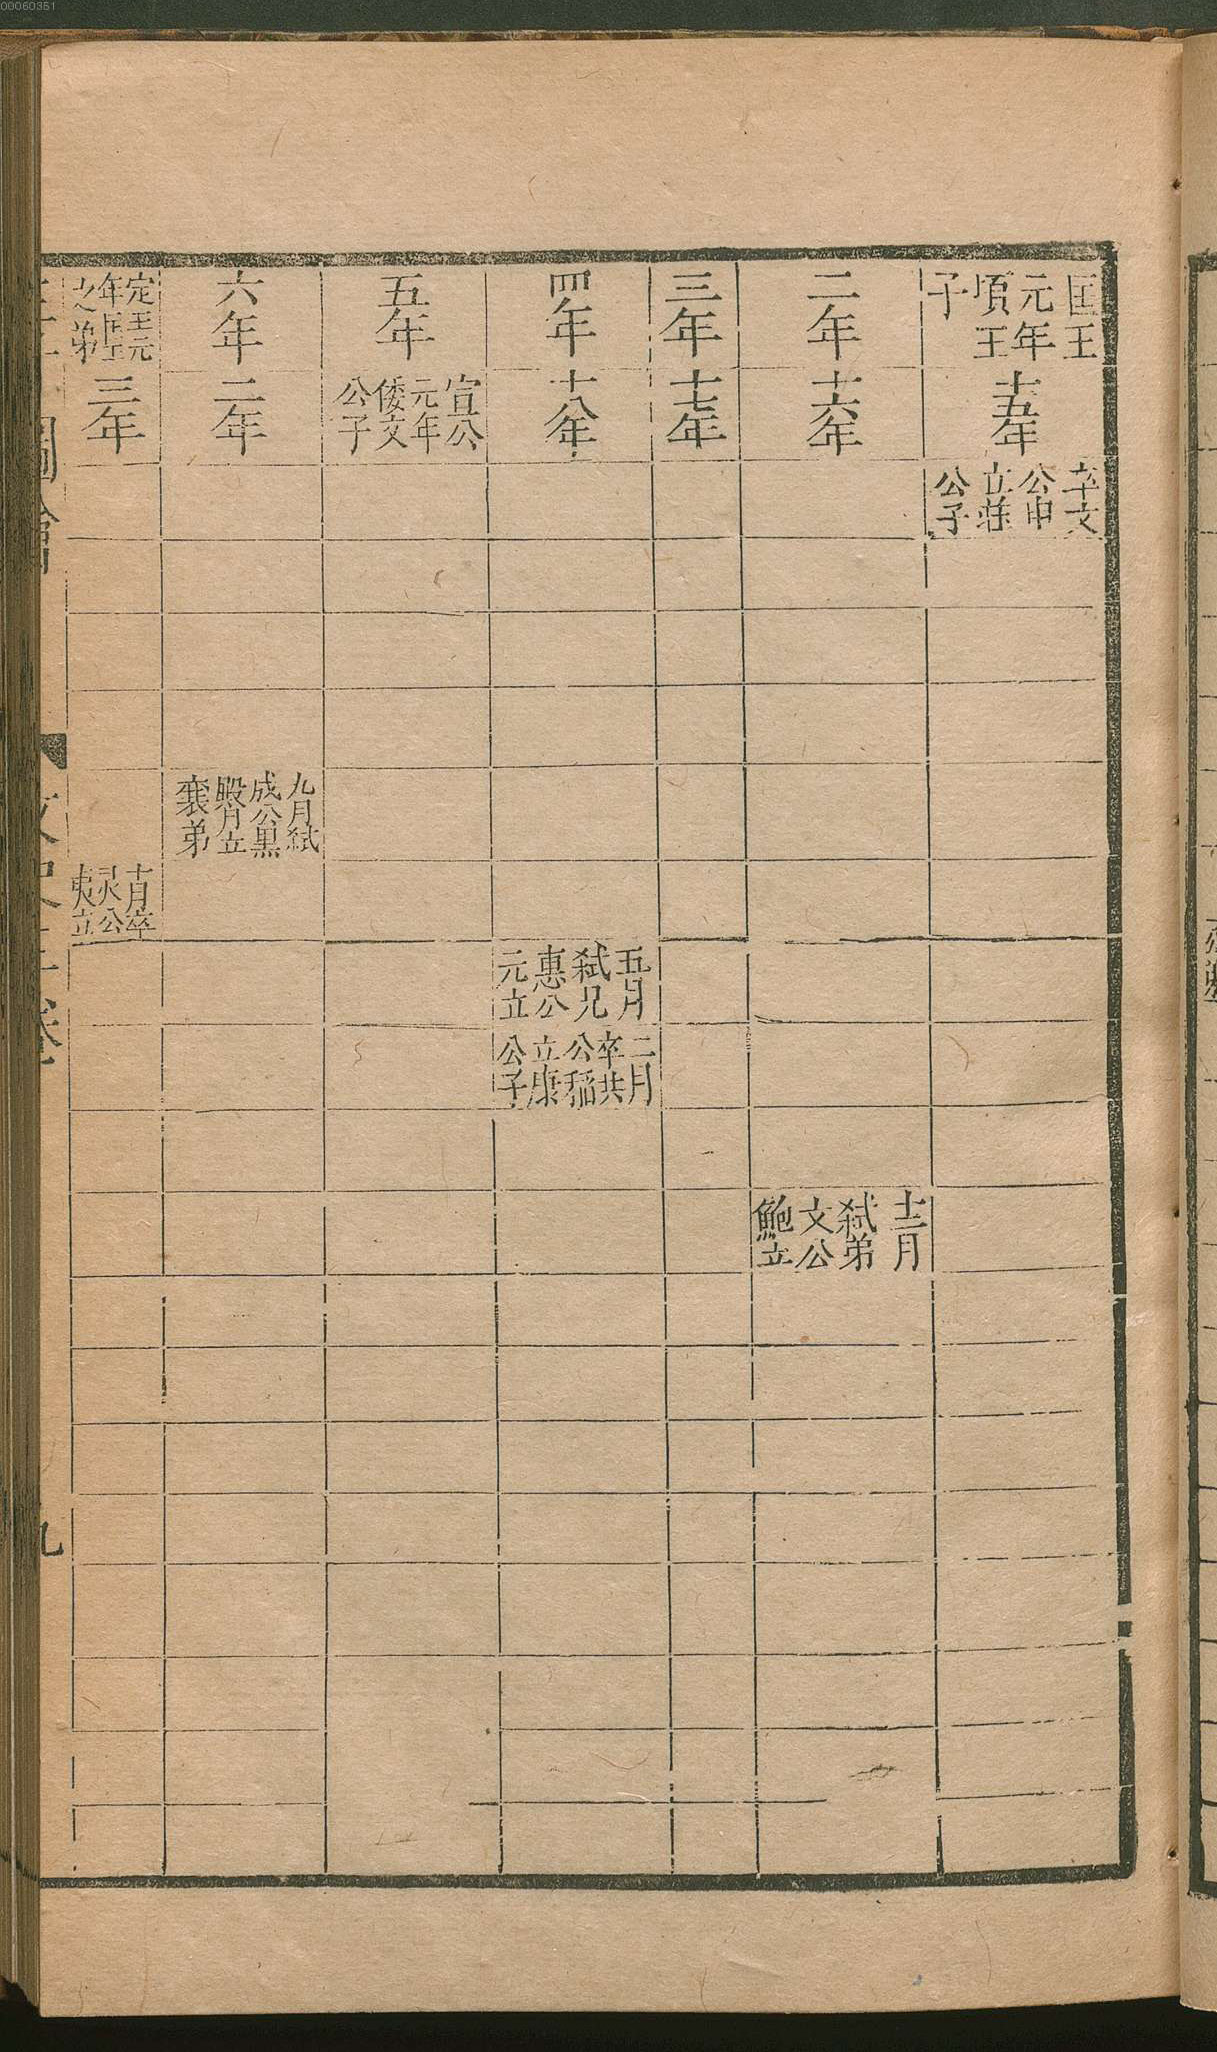 00060351
匡王
元年
頃王
子
十五年
卒文
公申
立莊
公子
二年
十六年
十二月
弒弟
文公
鮑立
三年
十七年
四年
十八年
五月
弒兄
惠公
元立
二月
卒共
公稻
立康
公子
五年
宣公
元年
倭文
公子
六年
二年
九月弒
成公黑
臋月立
襄弟
定王元
年匡王
之弟
三年
十月卒
灵公
夷立
圖會
文史三卷
九